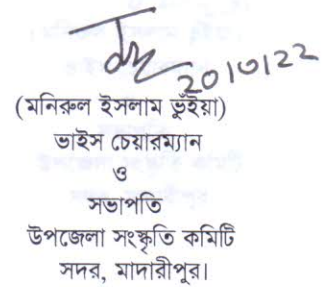 20/01/22
(মনিরুল ইসলাম ভূঁইয়া)
ভাইস চেয়ারম্যান
ও
সভাপতি
উপজেলা সংস্কৃতি কমিটি
সদর, মাদারীপুর।